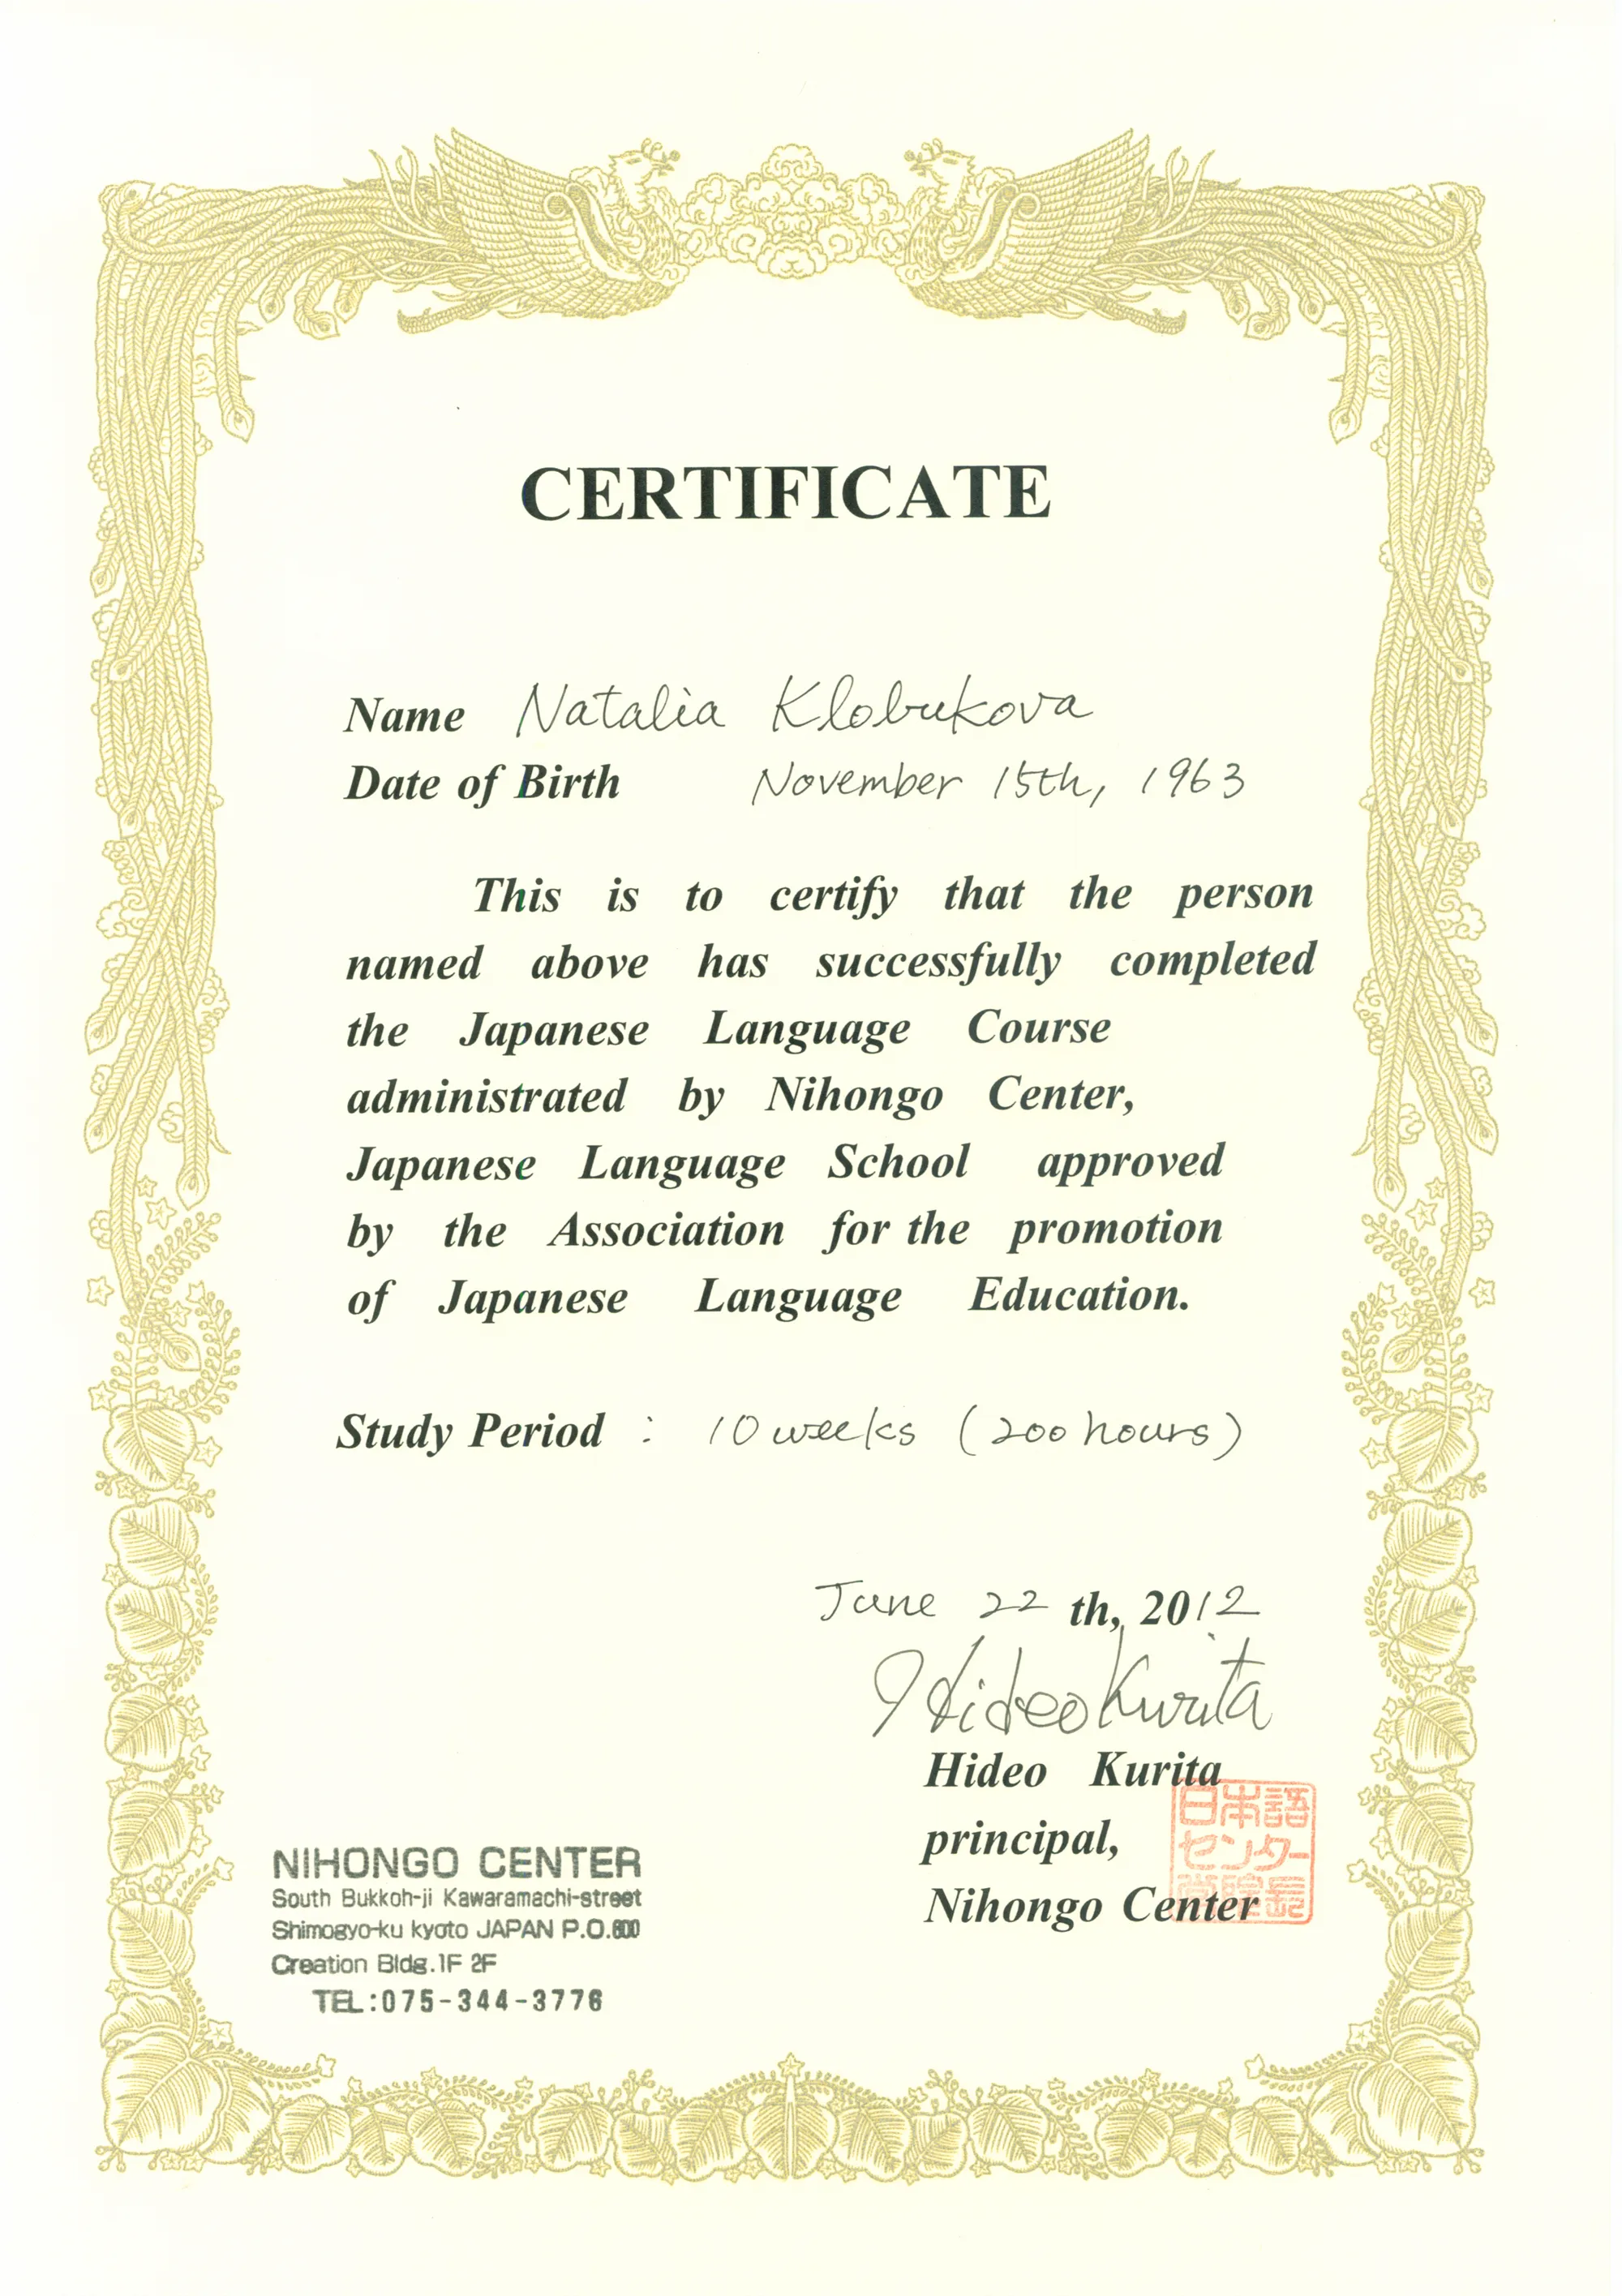 CERTIFICATE
Name Natalia Klobukova
Date of Birth November 15th, 1963
This is to certify that the person
named above has successfully completed
the Japanese Language Course
administrated by Nihongo Center,
Japanese Language School approved
by the Association for the promotion
of Japanese Language Education.
Study Period : 10 weeks (200 hours)
June 22 th, 2012
Hideo Kurita
Hideo Kurita
principal,
Nihongo Center
日本語
センター
学院長
NIHONGO CENTER
South Bukkoh-ji Kawaramachi-street
Shimogyo-ku kyoto JAPAN P.O.600
Creation Bldg.1F 2F
TEL:075-344-3776